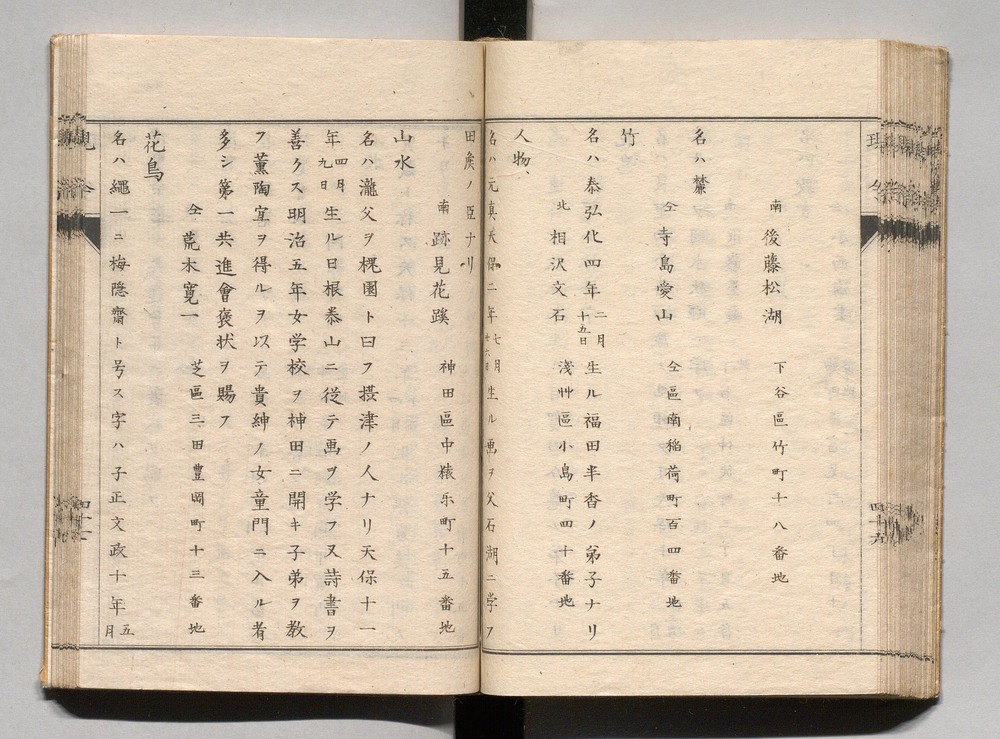 南　後藤松湖　下谷區竹町十八番地
名ハ薰
仝　寺島愛山　仝區南稲荷町百四番地
竹
名ハ泰弘化四年二月十五日生ル福田半香ノ弟子ナリ
北　相沢文石　淺艸區小島町四十番地
人物、
名ハ元真天保二年七月廿六日生ル画ヲ父石湖ニ学フ
田侯ノ臣ナリ
南　跡見花蹊　神田區中猿乐町十五番地
山水
名ハ瀧父ヲ槐園ト曰フ摂津ノ人ナリ天保十一
年四月九日生ル日根泰山ニ從テ画ヲ学フ又詩書ヲ
善クス明治五年女学校ヲ神田ニ開キ子弟ヲ教
フ薫陶宜ヲ得ルヲ以テ貴紳ノ女童門ニ入ル者
多シ第一共進會褒状ヲ賜フ
仝　荒木寛一　芝區三田豐岡町十三番地
花鳥
名ハ繩一ニ梅隠齋ト号ス字ハ子正文政十年五月
現今
四十五